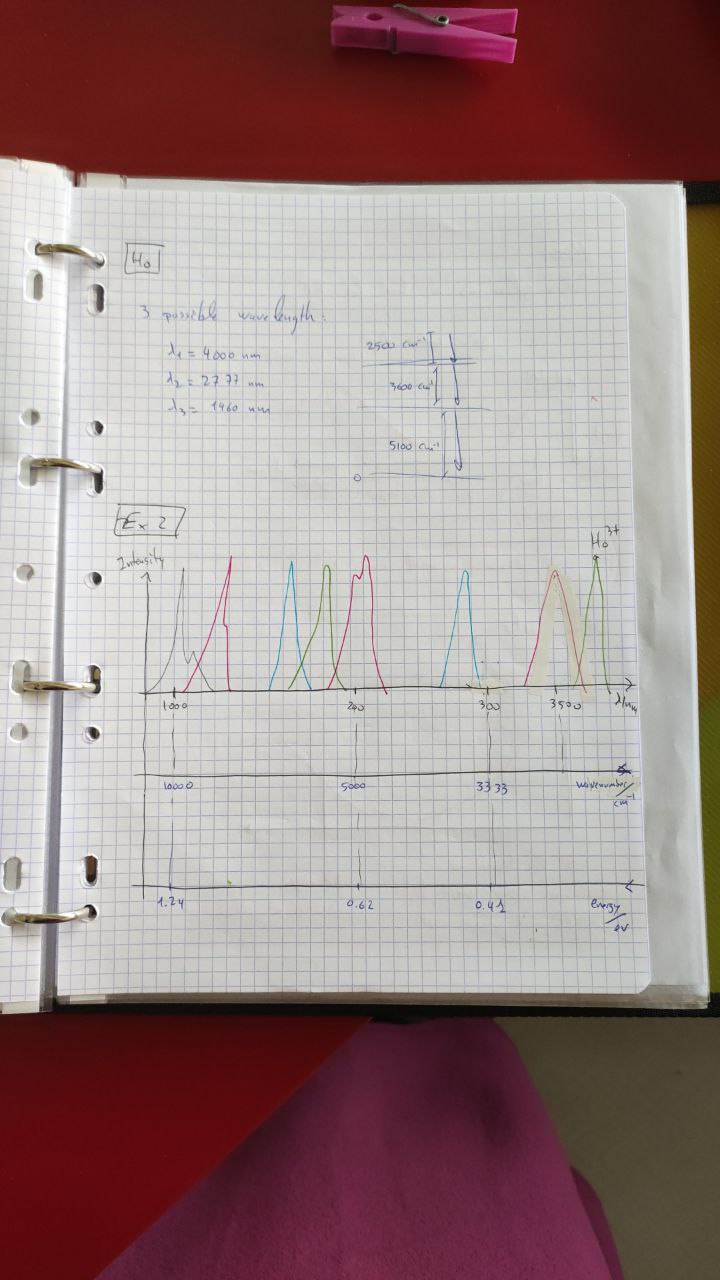 Ho
3 possible wavelength:
λ1 = 4000 nm
λ2 = 2777 nm
λ3 = 1960 nm
2500 cm⁻¹
3600 cm⁻¹
5100 cm⁻¹
0
Ex 2
Intensity
Ho³⁺
1000 200 300 3500 λ/nm
10000 5000 3333 wavenumber/cm⁻¹
1.24 0.62 0.41 energy/eV